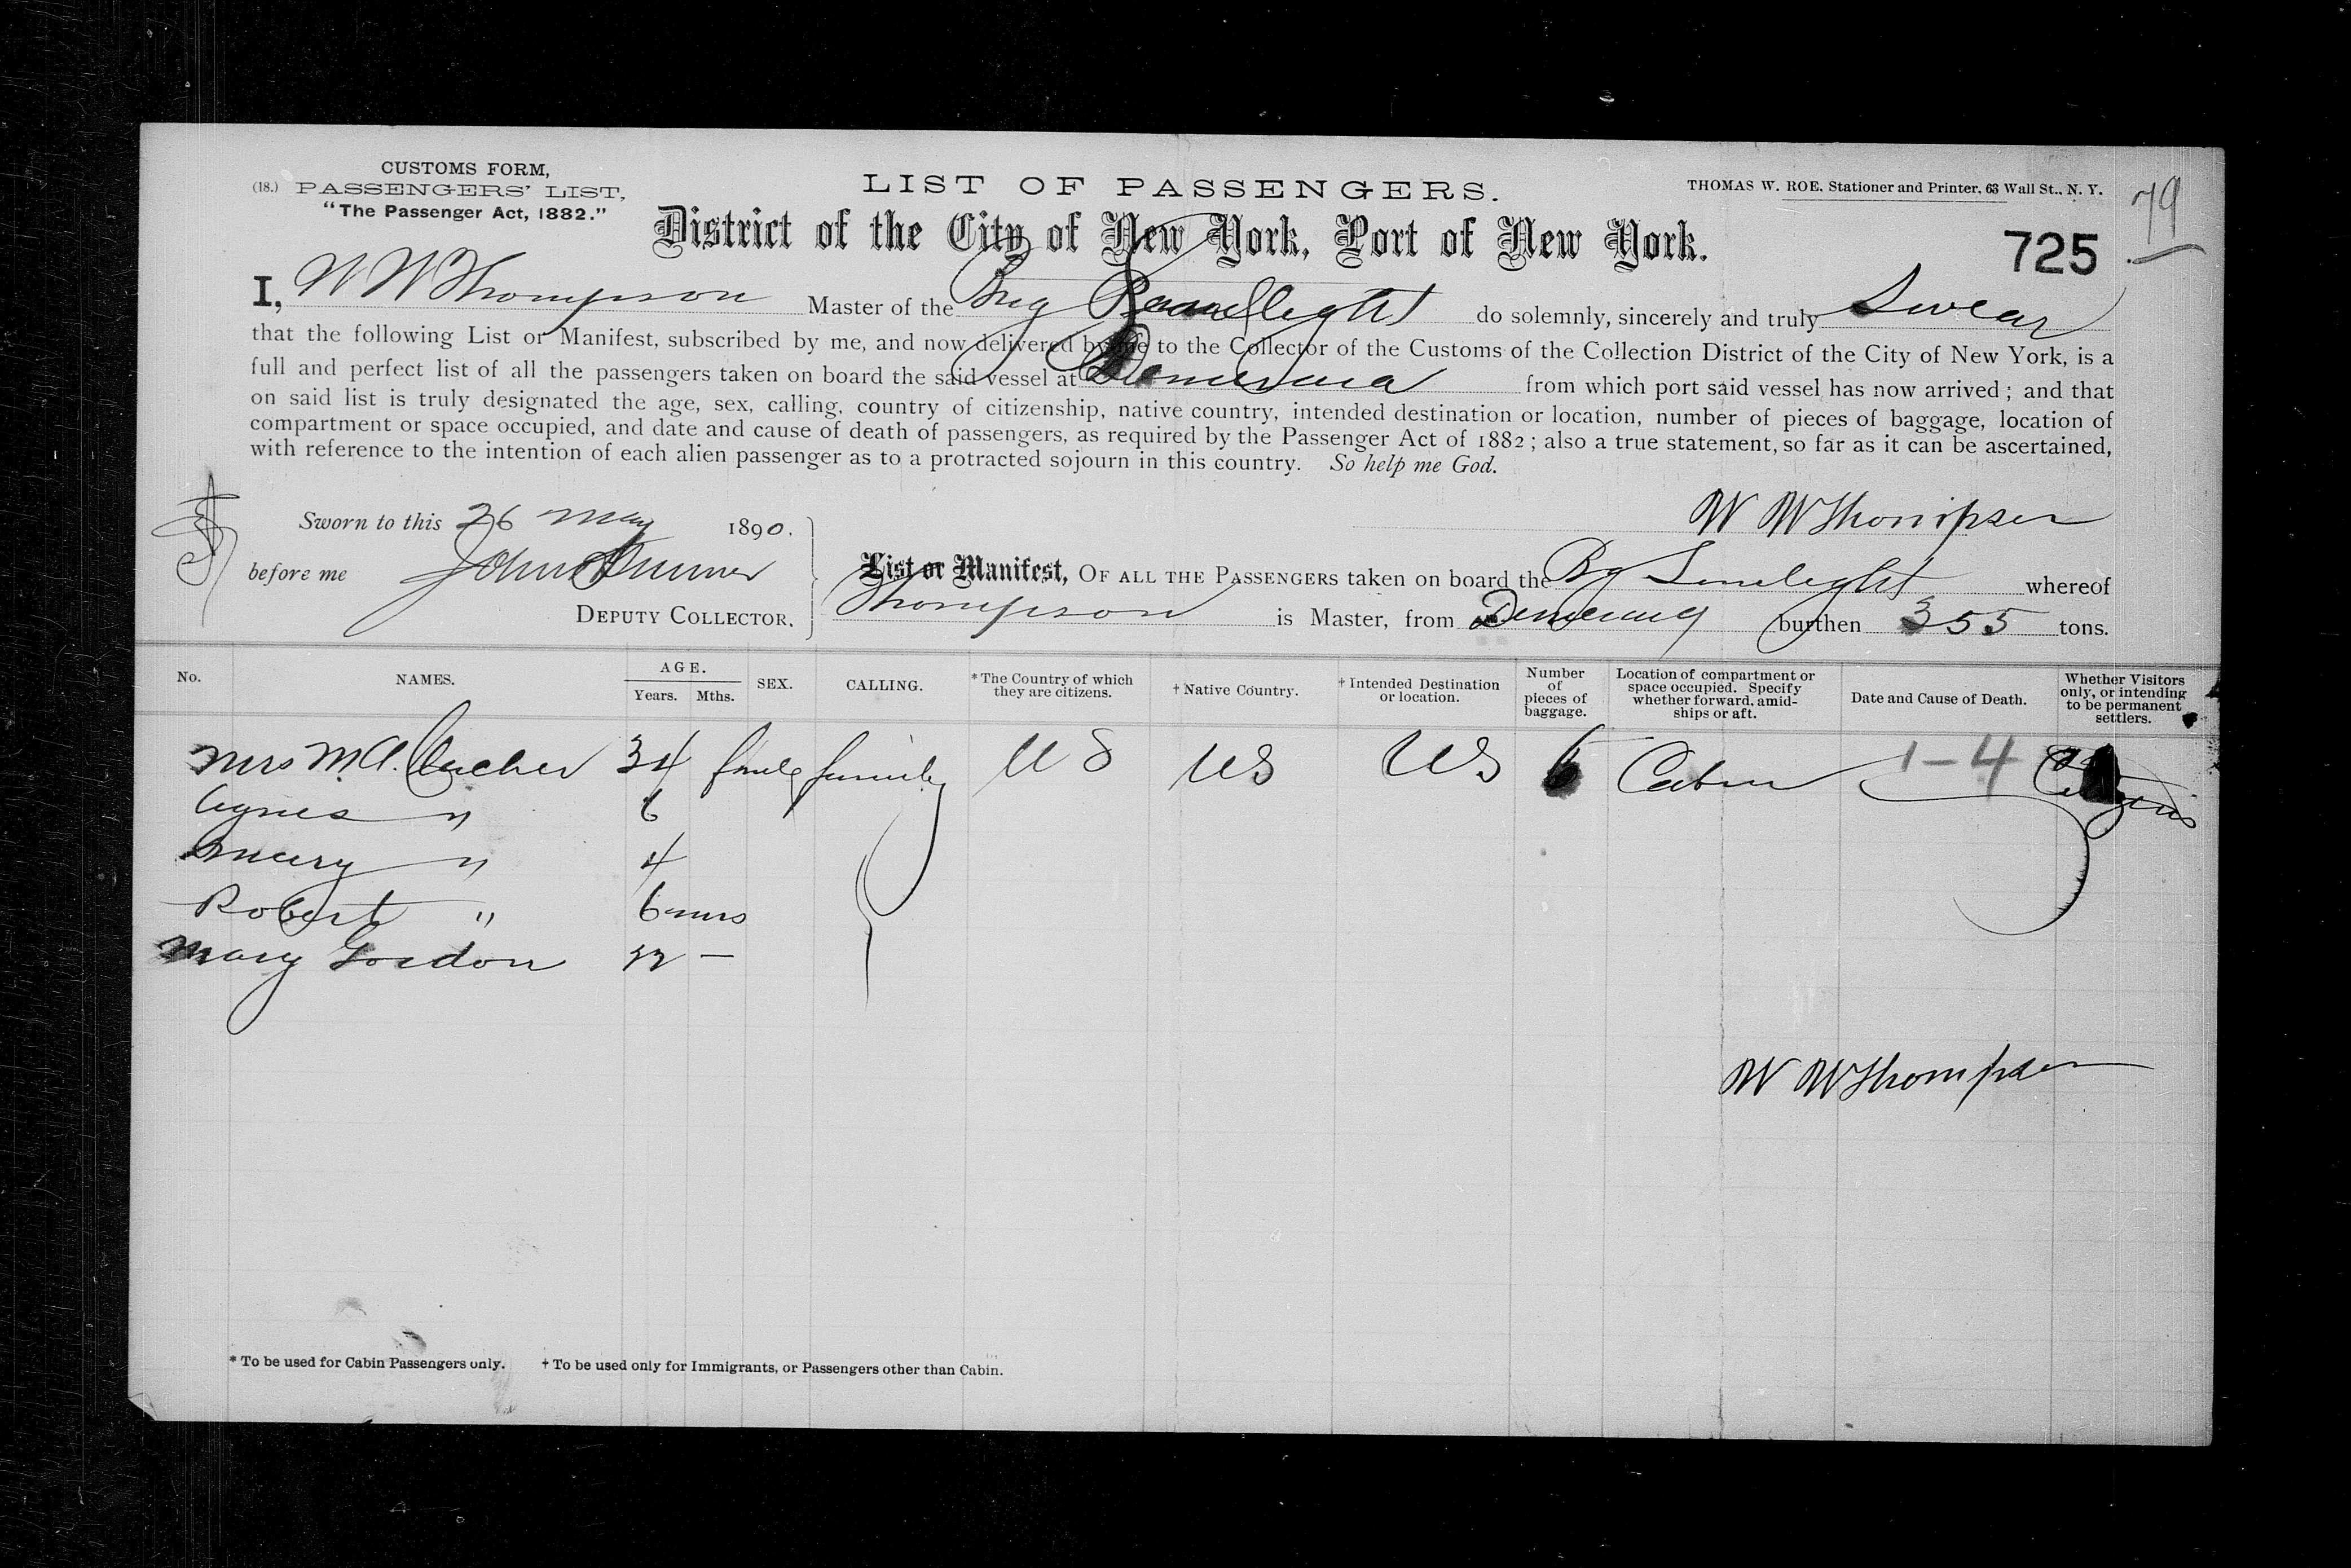 CUSTOMS FORM,
(18.) PASSENGERS' LIST,
"The Passenger Act, 1882."
LIST OF PASSENGERS.
THOMAS W. ROE, Stationer and Printer, 63 Wall St., N. Y.
79
District of the City of New York, Port of New York.
725
I, W W Thompson Master of the Brig do solemnly, sincerely and truly Swear
that the following List or Manifest, subscribed by me, and now delivered by me to the Collector of the Customs of the Collection District of the City of New York, is a
full and perfect list of all the passengers taken on board the said vessel at from which port said vessel has now arrived; and that
on said list is truly designated the age, sex, calling, country of citizenship, native country, intended destination or location, number of pieces of baggage, location of
compartment or space occupied, and date and cause of death of passengers, as required by the Passenger Act of 1882; also a true statement, so far as it can be ascertained,
with reference to the intention of each alien passenger as to a protracted sojourn in this country. So help me God.
W W Thompson
Sworn to this 26 May 1890.
before me John
DEPUTY COLLECTOR.
List or Manifest, OF ALL THE PASSENGERS taken on board the Bg whereof
Thompson is Master, from burthen 355 tons.
No. NAMES. AGE. Years. Mths. SEX. CALLING. *The Country of which they are citizens. †Native Country. †Intended Destination or location. Number of pieces of baggage. Location of compartment or space occupied. Specify whether forward, amidships or aft. Date and Cause of Death. Whether Visitors only, or intending to be permanent settlers.
Mrs M.A. 34 family US US US 6 Cabin 1-4 Citizens
Agnes " 6
" 4
Robert " 6 mos
Mary Gordon 22 —
W W Thompson
* To be used for Cabin Passengers only. † To be used only for Immigrants, or Passengers other than Cabin.